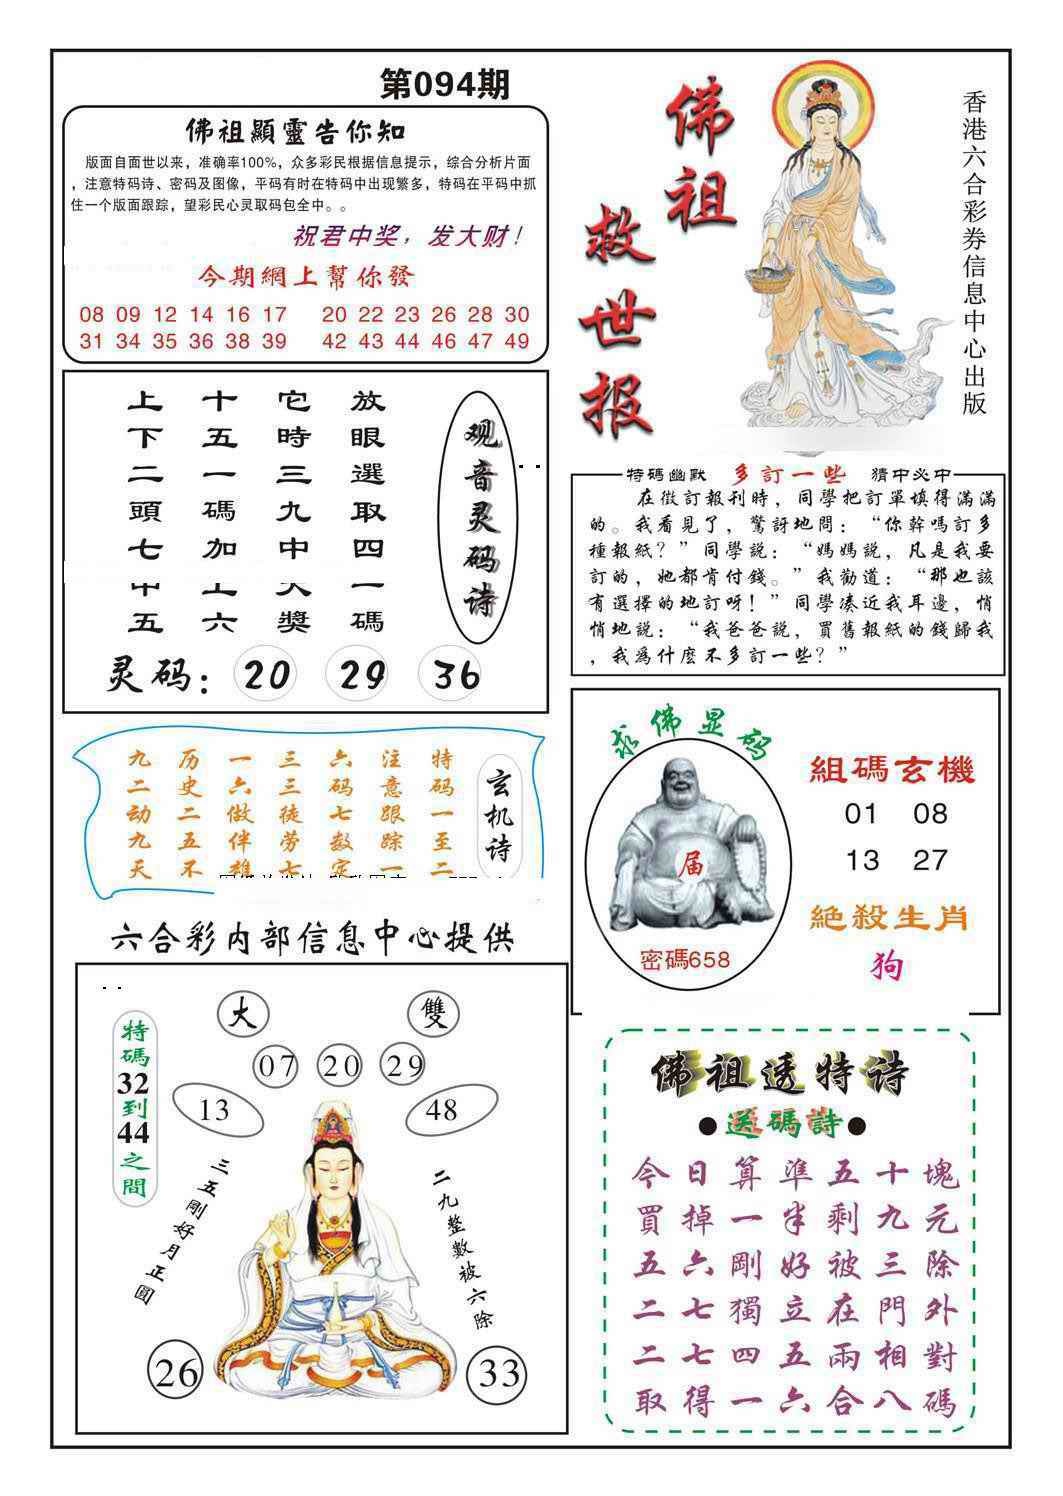 第094期
佛祖顯靈告你知
版面自面世以来，准确率100%，众多彩民根据信息提示，综合分析片面
，注意特码诗、密码及图像，平码有时在特码中出现繁多，特码在平码中抓
住一个版面跟踪，望彩民心灵取码包全中。。
祝君中奖，发大财！
今期網上幫你發
08 09 12 14 16 17 20 22 23 26 28 30
31 34 35 36 38 39 42 43 44 46 47 49
佛祖
救世报
香港六合彩券信息中心出版
观音灵码诗
放眼選取四一碼
它時三九中大獎
十五一碼加上六
上下二頭七中五
灵码：20 29 36
特碼幽默 多訂一些 猜中必中
在徵訂報刊時，同學把訂單填得滿滿
的。我看見了，驚訝地問：“你幹嗎訂多
種報紙？”同學說：“媽媽説，凡是我要
訂的，她都肯付錢。”我勸道：“那也該
有選擇的地訂呀！”同學湊近我耳邊，悄
悄地說：“我爸爸説，買舊報紙的錢歸我
，我爲什麼不多訂一些？”
玄机诗
特码一至二
注意跟踪一
六码七数定
三三徒劳七
一六做伴雄
历史二五不
九二动九天
求佛显码
届
密碼658
組碼玄機
01 08
13 27
絕殺生肖
狗
六合彩内部信息中心提供
大 雙
07 20 29
13 48
特碼32到44之間
三五剛好月正圓
二九整數被六除
26 33
佛祖透特诗
●送碼詩●
今日算準五十塊
買掉一半剩九元
五六剛好被三除
二七獨立在門外
二七四五兩相對
取得一六合八碼